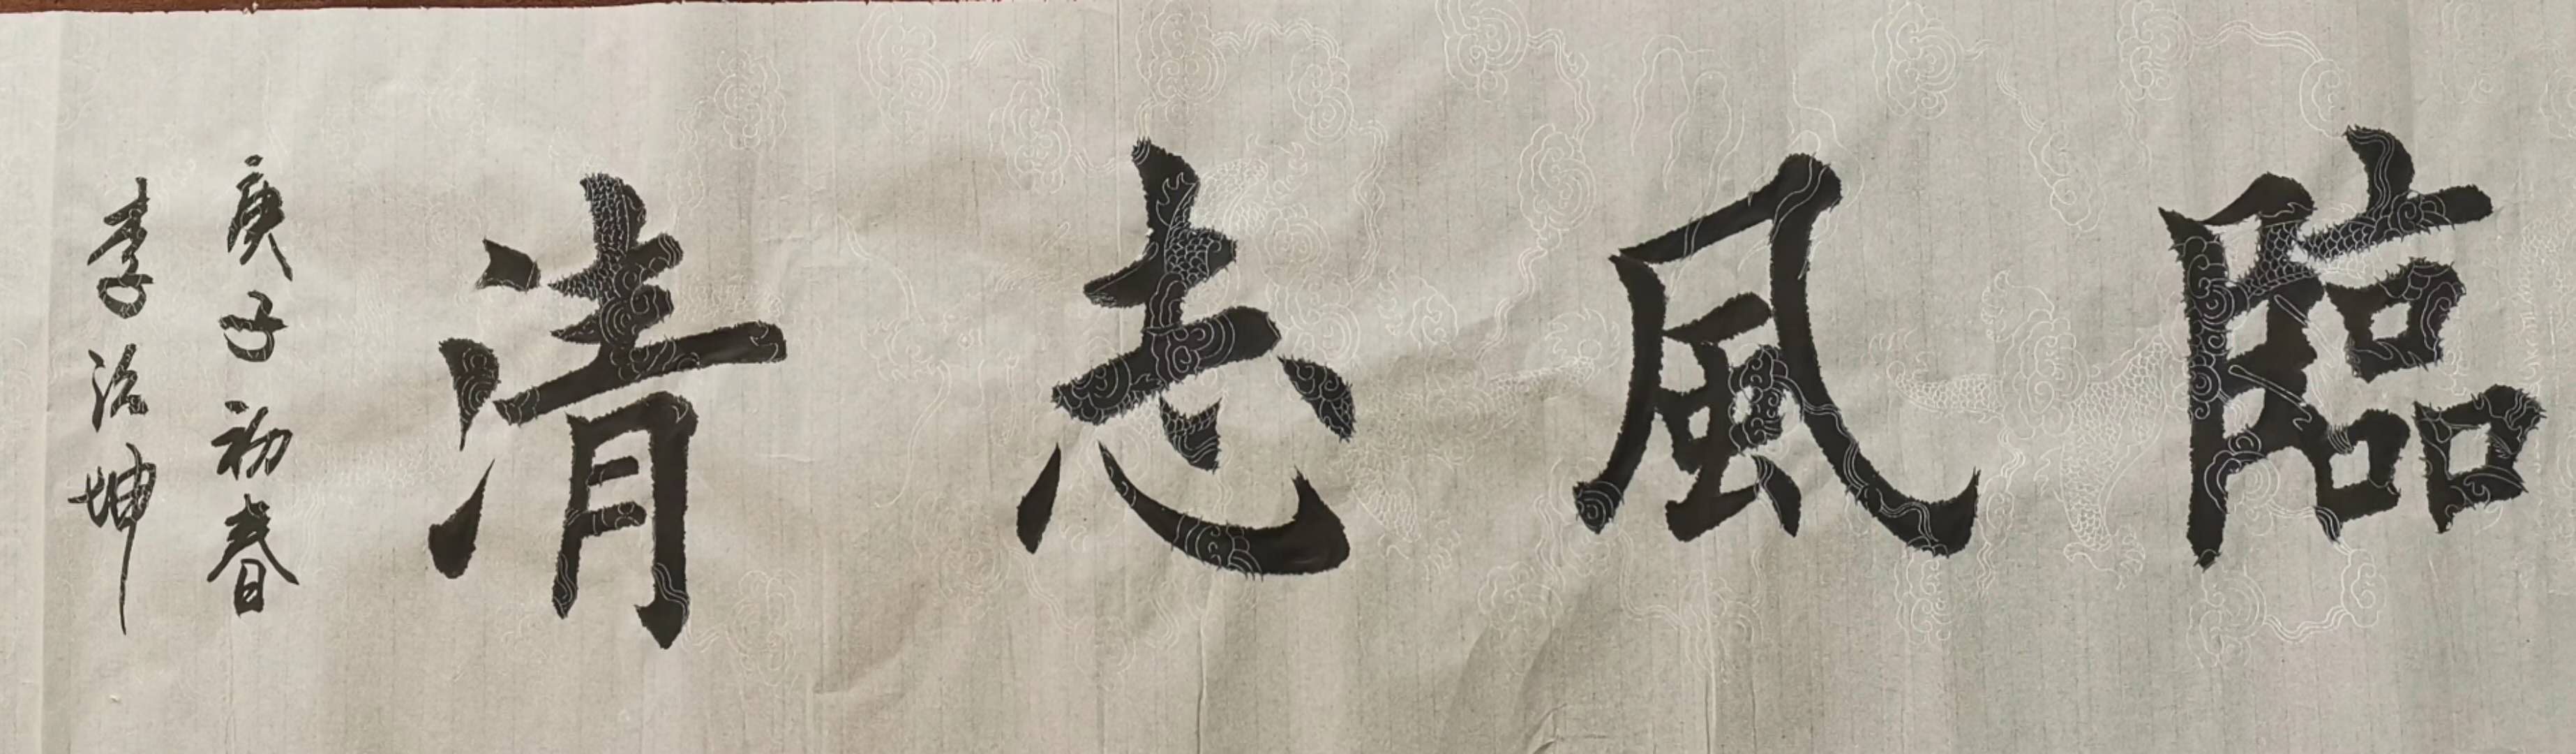 臨風志清
庚子初春
李治坤